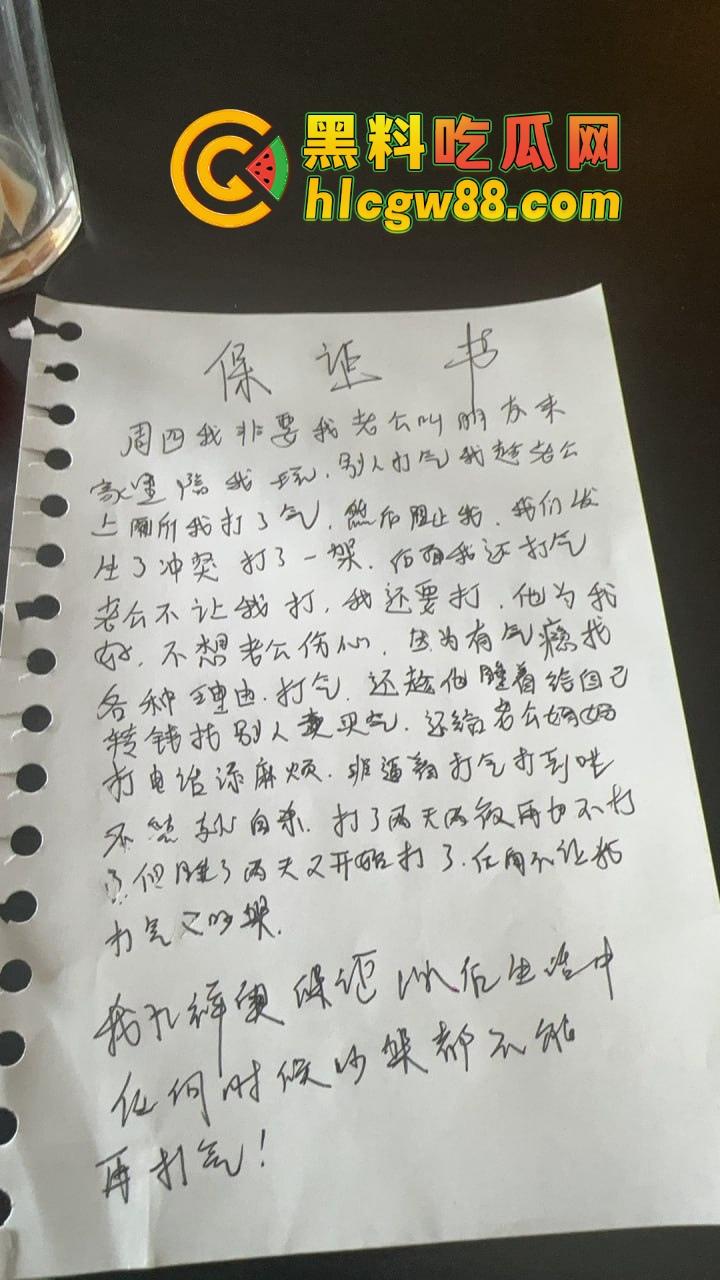 黑料吃瓜网
hlcgw88.com
保证书
周四我非要我老公叫朋友来
家里陪我玩,别人打气我趁老公
上厕所我打了气,然后阻止我,我们发
生了冲突 打了一架,后面我还打气
老公不让我打,我还要打,他为我
好,不想老公伤心,因为有气瘾找
各种理由,打气,还趁他睡着给自己
转钱找别人买气,还给老公妈妈
打电话添麻烦,非逼着打气打到
自杀,打了两天两夜再也不打
了但睡了两天又开始打了,任
打气又吵架.
我 保证以后生活中
任何时候吵架都不能
再打气!